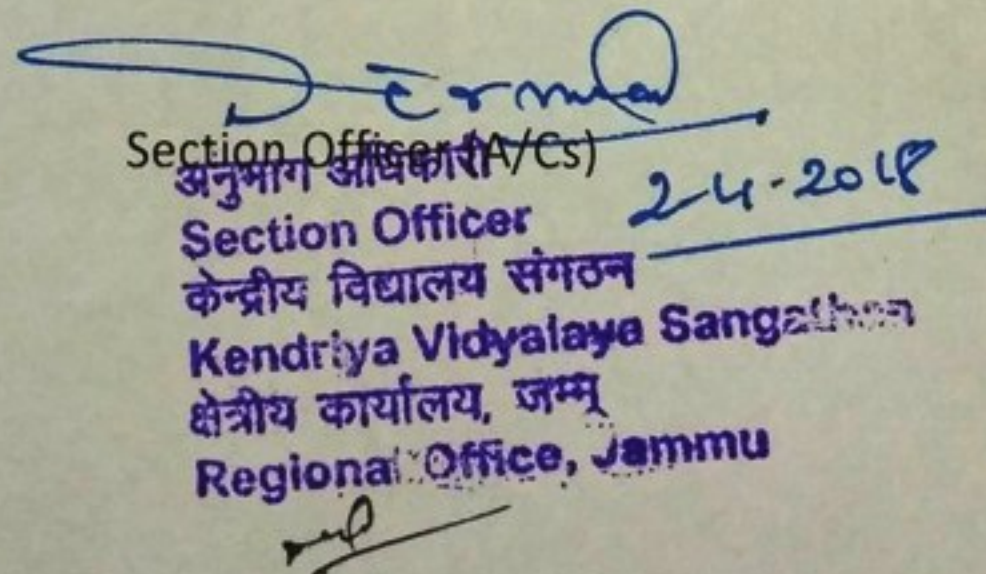 Section Officer (A/Cs)
2-4-2018
अनुभाग अधिकारी
Section Officer
केन्द्रीय विद्यालय संगठन
Kendriya Vidyalaya Sangathan
क्षेत्रीय कार्यालय, जम्मू
Regional Office, Jammu